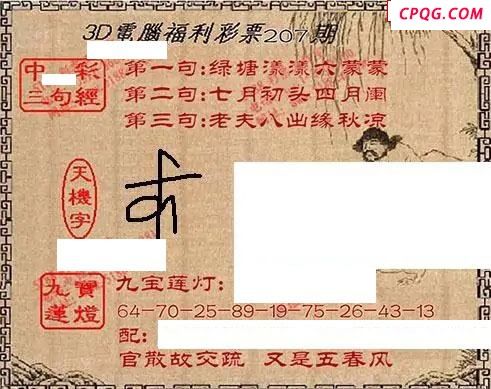 CPQG.COM
3D電腦福利彩票207期
中 彩
三句經
第一句:绿塘漾漾六蒙蒙
第二句:七月初头四月阑
第三句:老夫八出缘秋凉
天機字
九寶
蓮燈
九宝莲灯:
64-70-25-89-19-75-26-43-13
配:
官散故交疏 又是五春风